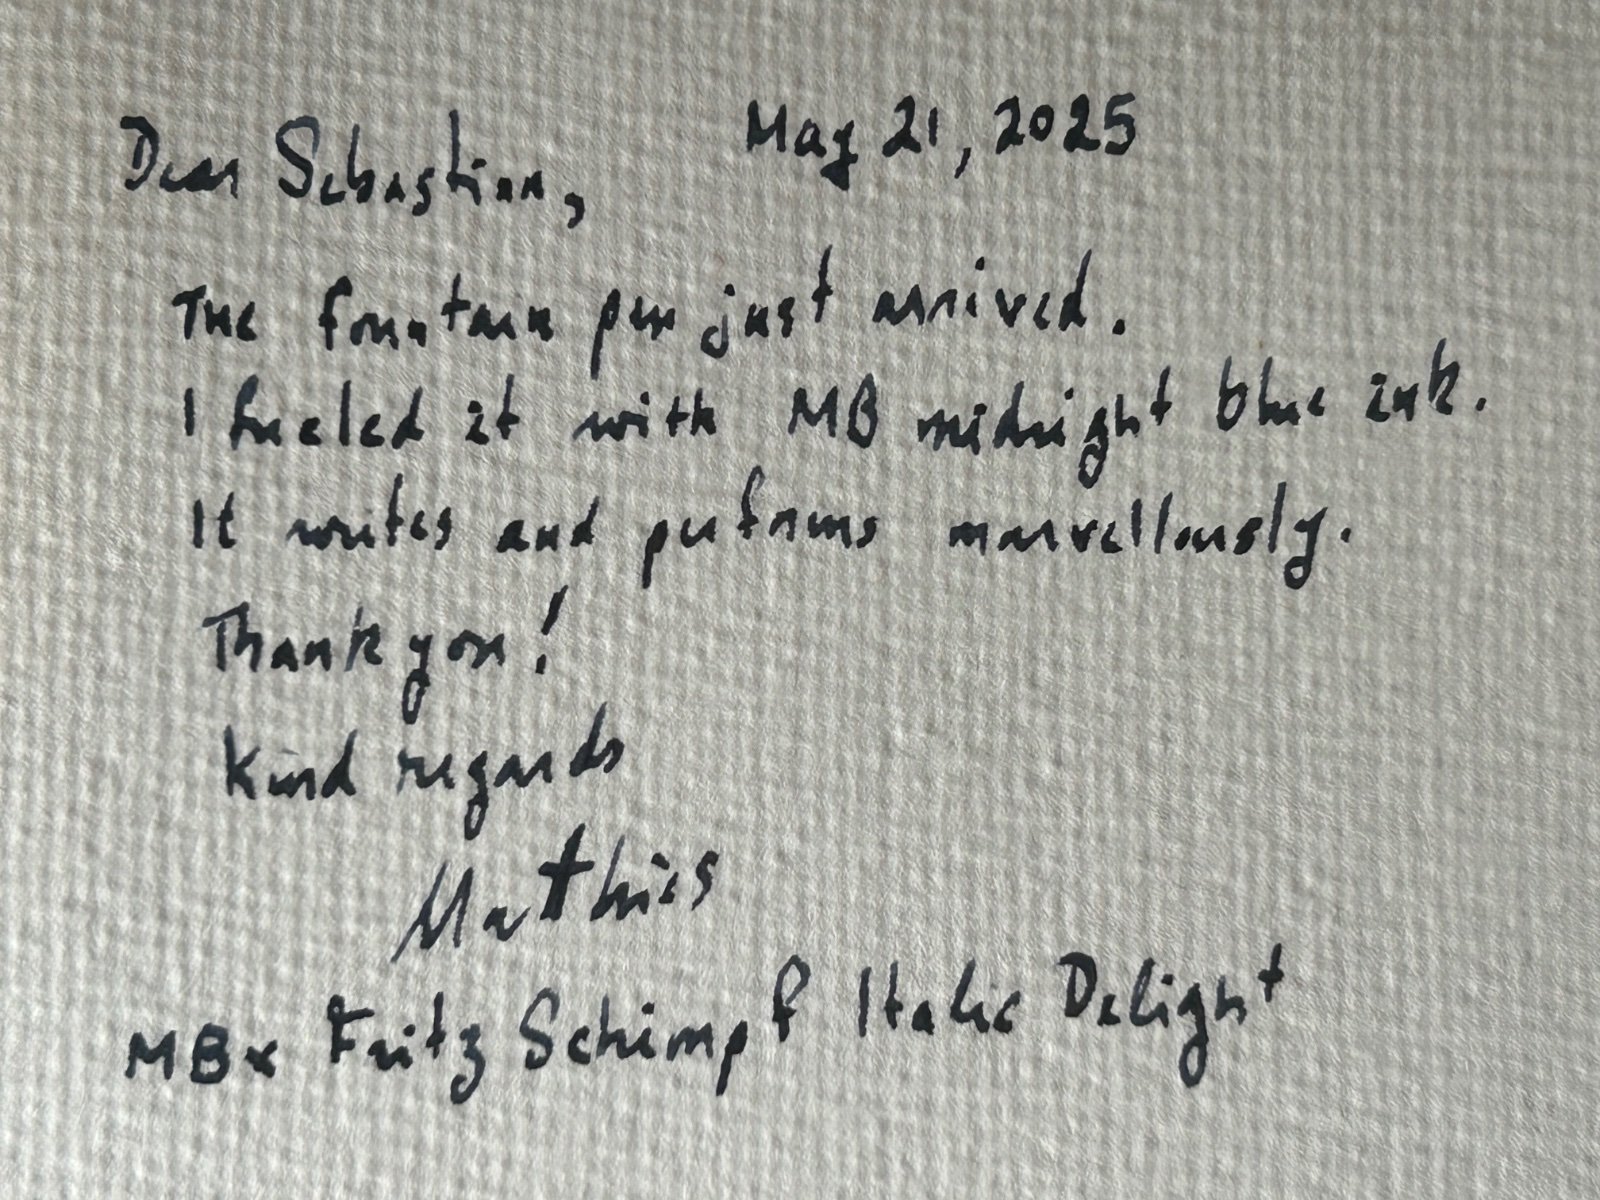 May 21, 2025
Dear Sebastian,
The fountain pen just arrived.
I fueled it with MB midnight blue ink.
It writes and performs marvellously.
Thank you!
Kind regards
Matthies
MB x Fritz Schimpf Italic Delight